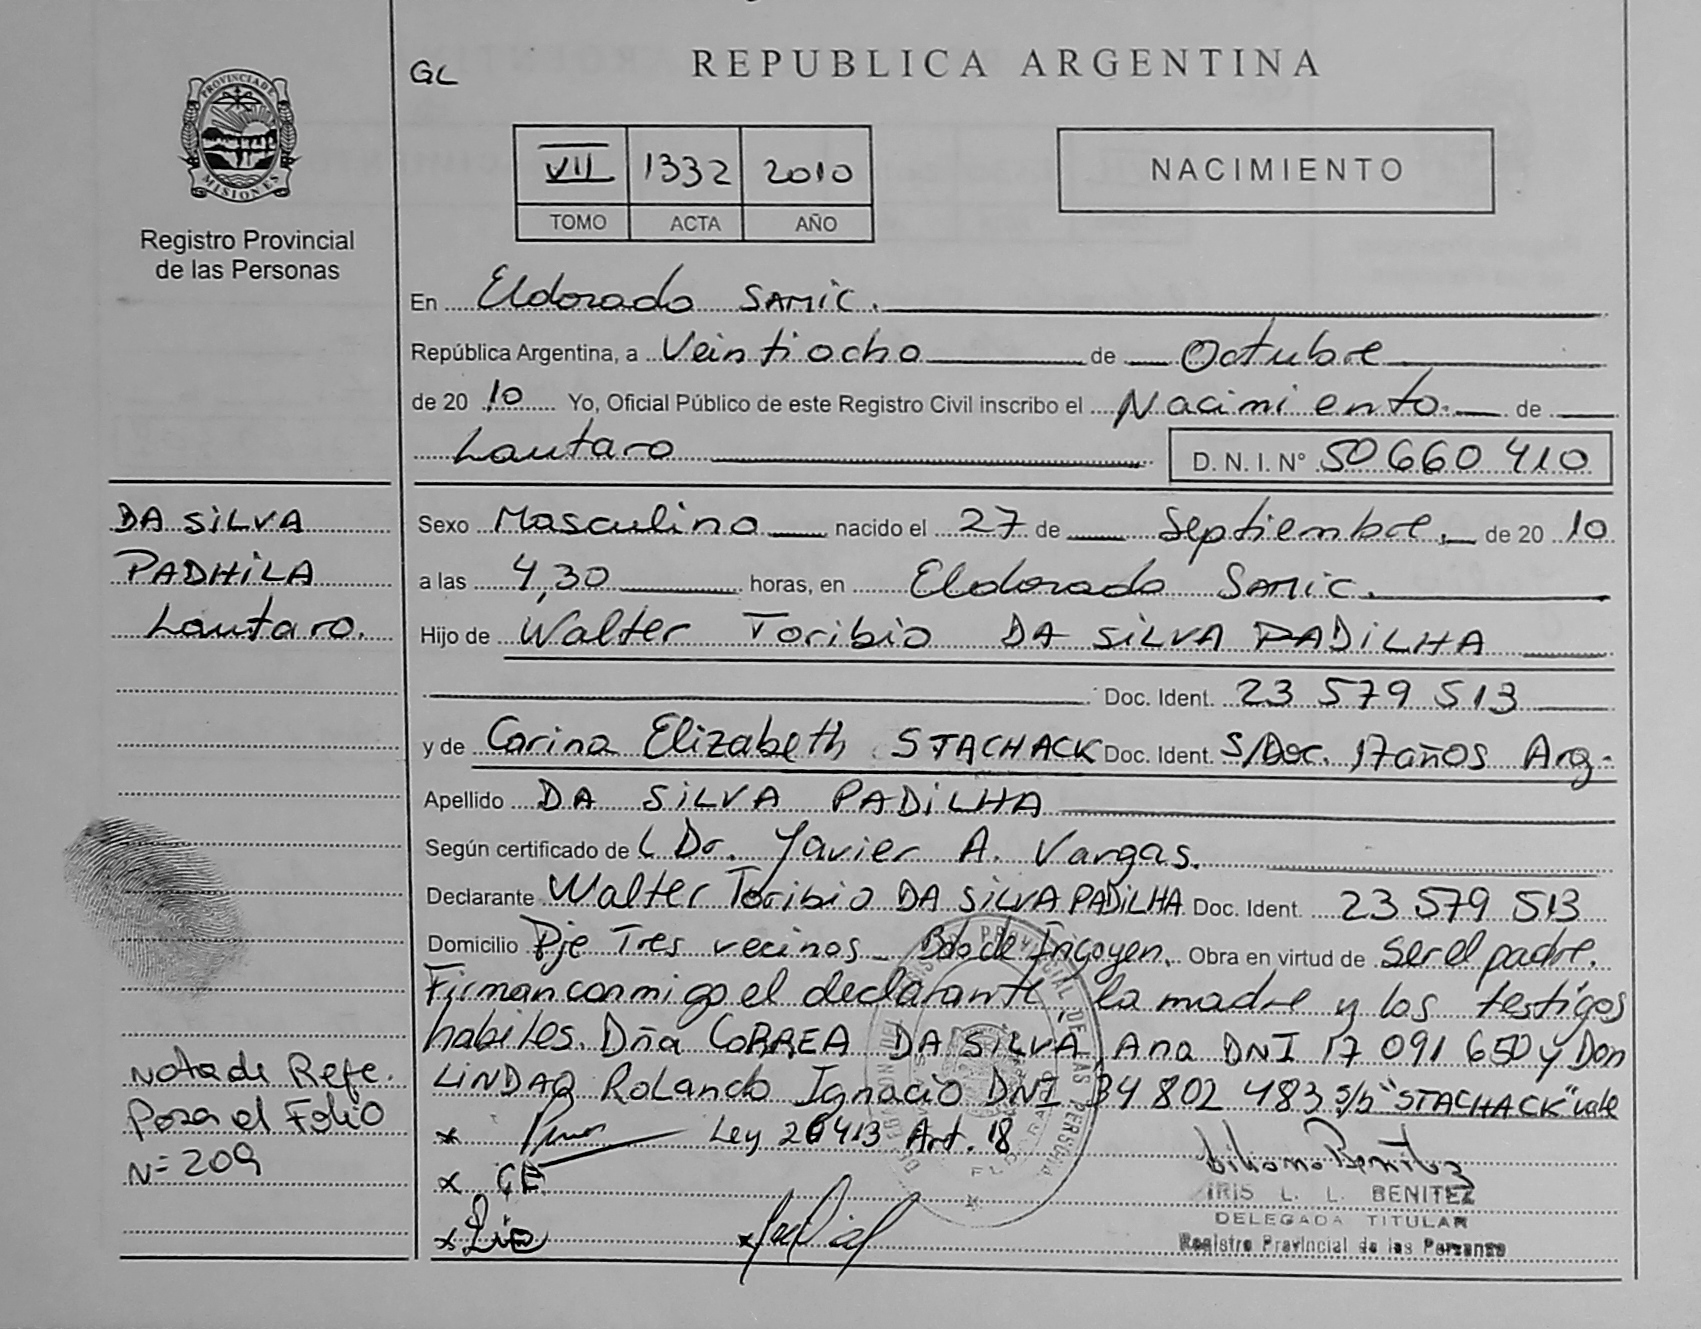 GL
REPUBLICA ARGENTINA
PROVINCIA DE MISIONES
Registro Provincial
de las Personas
VII 1332 2010
TOMO ACTA AÑO
NACIMIENTO
En Eldorado SAMIC.
República Argentina, a Veintiocho de Octubre
de 20 10 Yo, Oficial Público de este Registro Civil inscribo el Nacimiento de
Lautaro D.N.I.N° 50 660 410
DA SILVA
PADHILA
Lautaro.
Sexo Masculino nacido el 27 de Septiembre, de 20 10
a las 4,30 horas, en Eldorado SAMIC.
Hijo de Walter Toribio DA SILVA PADILHA
Doc. Ident. 23 579 513
y de Carina Elizabeth STACHACK Doc. Ident. S/Doc. 17 años Arg.
Apellido DA SILVA PADILHA
Según certificado de L Dr. Javier A. Vargas.
Declarante Walter Toribio DA SILVA PADILHA Doc. Ident. 23 579 513
Domicilio Pje Tres vecinos Bdo de Irigoyen. Obra en virtud de ser el padre.
Firman conmigo el declarante, la madre y los testigos
habiles. Dña CORREA DA SILVA, Ana DNI 17 091 650 y Don
LINDAO Rolando Ignacio DNI 34 802 483 s/b "STACHACK" vale
Ley 26413 Art. 18
Nota de Refe.
Posa el Folio
N= 209
IRIS L. L. BENITEZ
DELEGADA TITULAR
Registro Provincial de las Personas